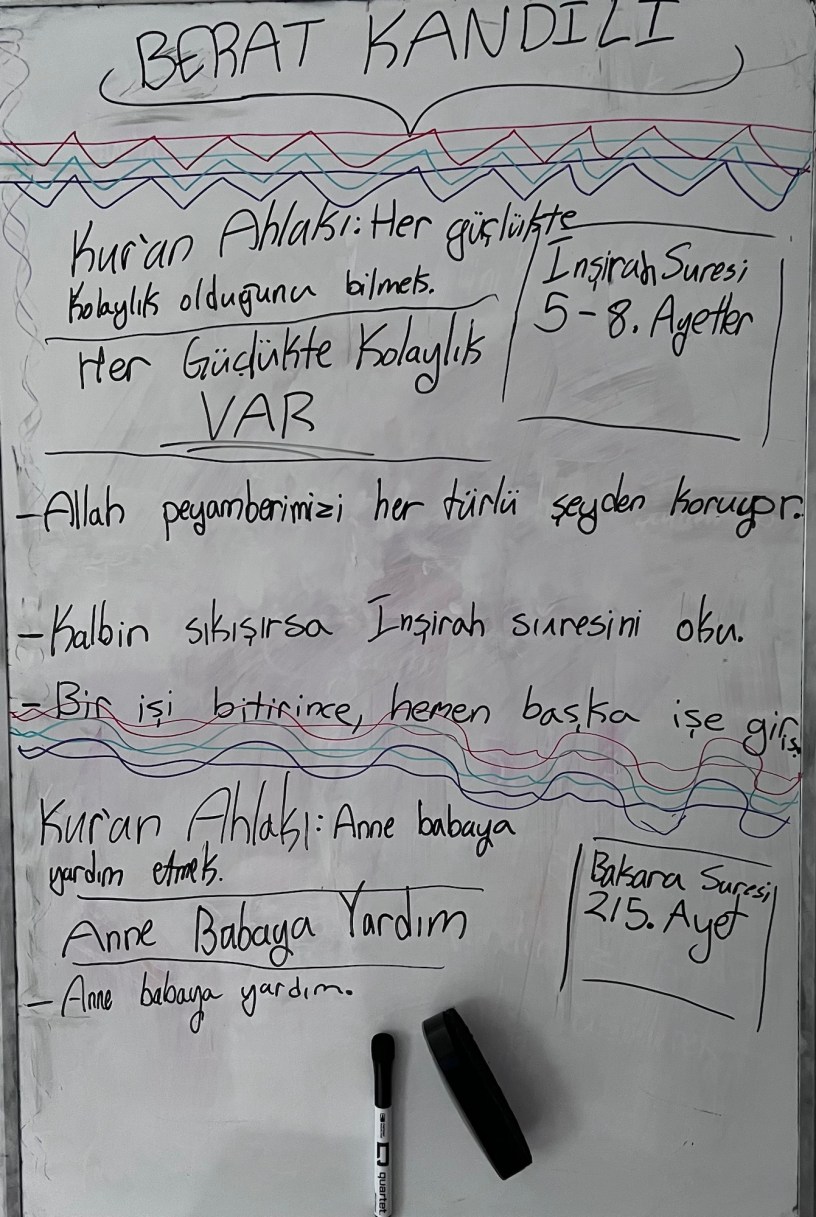 BERAT KANDİLİ
Kur'an Ahlakı: Her güçlükte
kolaylık olduğunu bilmek.
İnşirah Suresi
5-8. Ayetler
Her Güçlükte Kolaylık
VAR
- Allah peyamberimizi her türlü şeyden koruyor.
- Kalbin sıkışırsa İnşirah suresini oku.
- Bir işi bitirince, hemen başka işe giriş.
Kur'an Ahlakı: Anne babaya
yardım etmek.
Bakara Suresi
215. Ayet
Anne Babaya Yardım
- Anne babaya yardım.
quartet